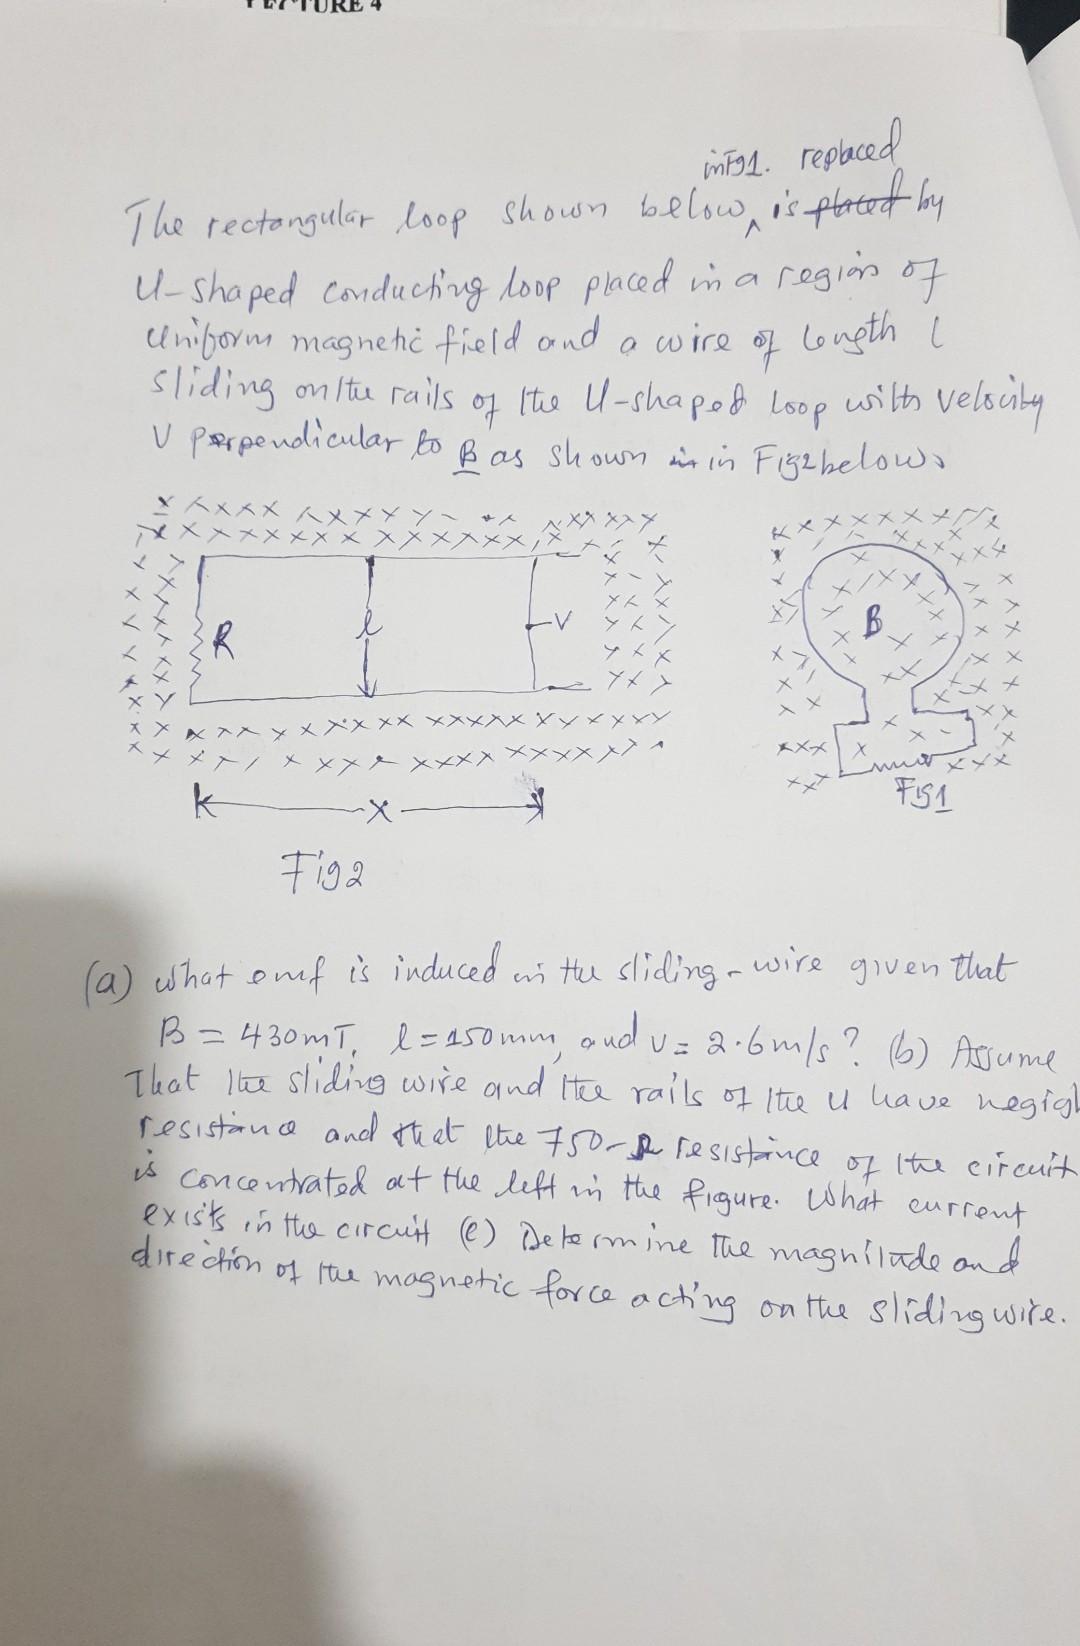 LECTURE 4
in Fig1. replaced
The rectangular loop shown below, is placed by
U-shaped conducting loop placed in a region of
Uniform magnetic field and a wire of length l
Sliding on the rails of the U-shaped loop with velocity
V perpendicular to B as shown in in Fig2 below.
R
l
V
B
Fig1
X
Fig2
(a) What emf is induced in the sliding-wire given that
B = 430mT, l = 150mm, and v = 2.6m/s? (b) Assume
That the sliding wire and the rails of the U have negigl
resistance and that the 750-Ω resistance of the circuit
is concentrated at the left in the figure. What current
exists in the circuit (c) Determine the magnitude and
direction of the magnetic force acting on the sliding wire.